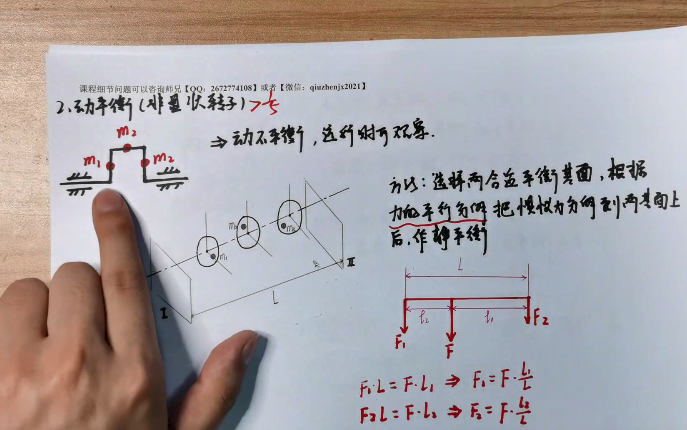 课程细节问题可以咨询师兄【QQ: 2672774108】或者【微信: qiuzhenjx2021】
2.动平衡(非盘状转子) > 1/5
⇒ 动不平衡,运行时可观察.
m₂
m₁
m₂
方法:选择两合适平衡基面,根据
力的平行分解把惯性力分解到两基面上
后,作静平衡
m₁
m₂
I
II
L
L
l₂
l₁
F₁
F
F₂
F₁·L = F·L₁ ⇒ F₁ = F·L₁/L
F₂L = F·L₂ ⇒ F₂ = F·L₂/L